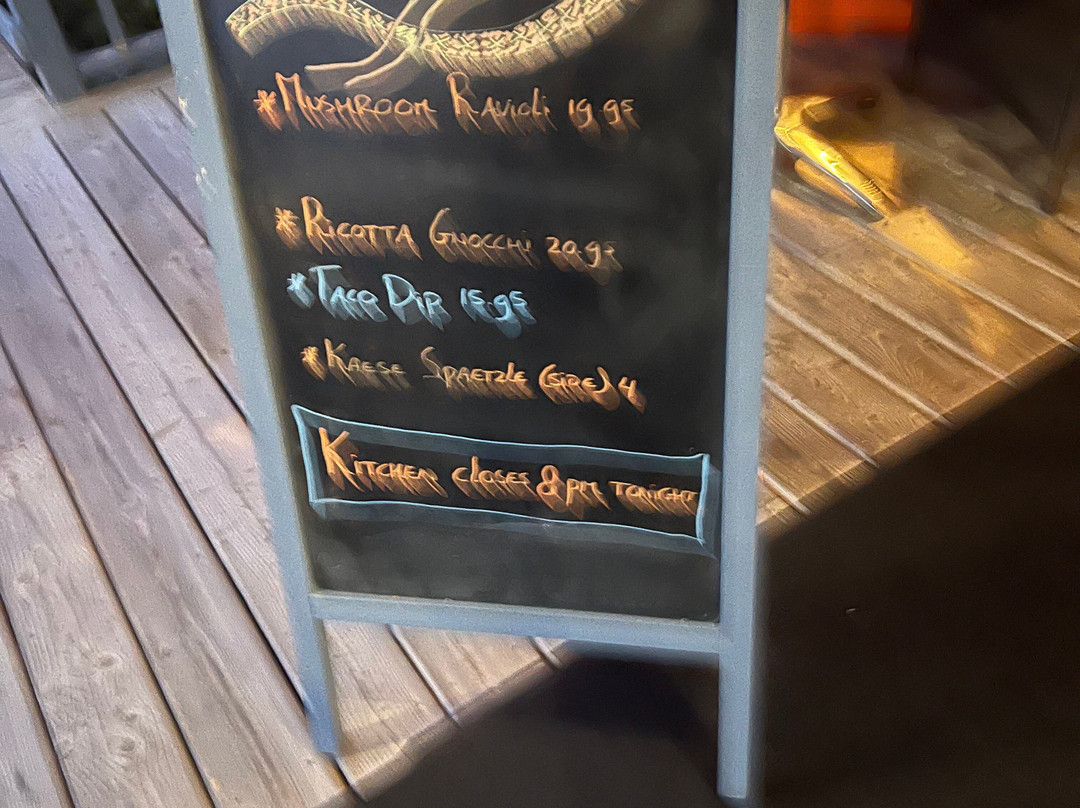 *Mushroom Ravioli 19.95
*Ricotta Gnocchi 20.95
*Taco Dip 15.95
*Kaese Spaetzle (side) 4
Kitchen closes 8pm tonight